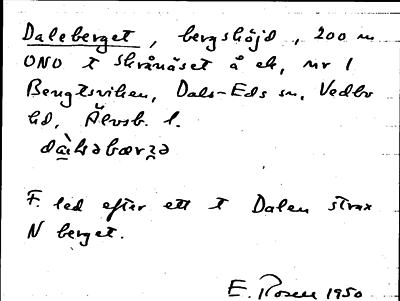 Daleberget, bergshöjd, 200 m
ONO t Skrånäset å ek, nr 1
Bengtsviken, Dals-Eds sn, Vedbo
hd, Älvsb. l.
F. led efter ett t Dalen strax
N berget.
E. Rosen 1950